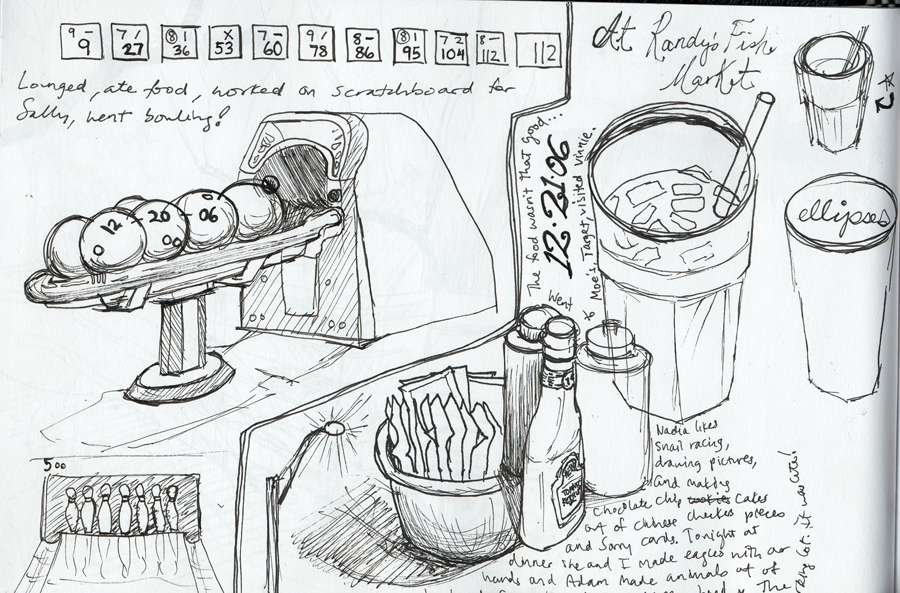 9 - 9
7 / 27
⑧ 1 36
X 53
7 - 60
9 / 78
8 - 86
⑧ 1 95
7 2 104
8 - 112
112
Lounged, ate food, worked on scratchboard for
Sally, went bowling!
12 - 20 - 06
500
At Randy's Fish
Market
ellipses
The food wasn't that good...
12.21.06
Went to Moe's, Target, visited Vinnie.
Nadia likes
snail racing,
drawing pictures,
and making
chocolate chip cakes
out of chinese checkers pieces
and Sorry cards. Tonight at
dinner she and I made eagles with our
hands and Adam made animals out of
The
lot. it was cute!